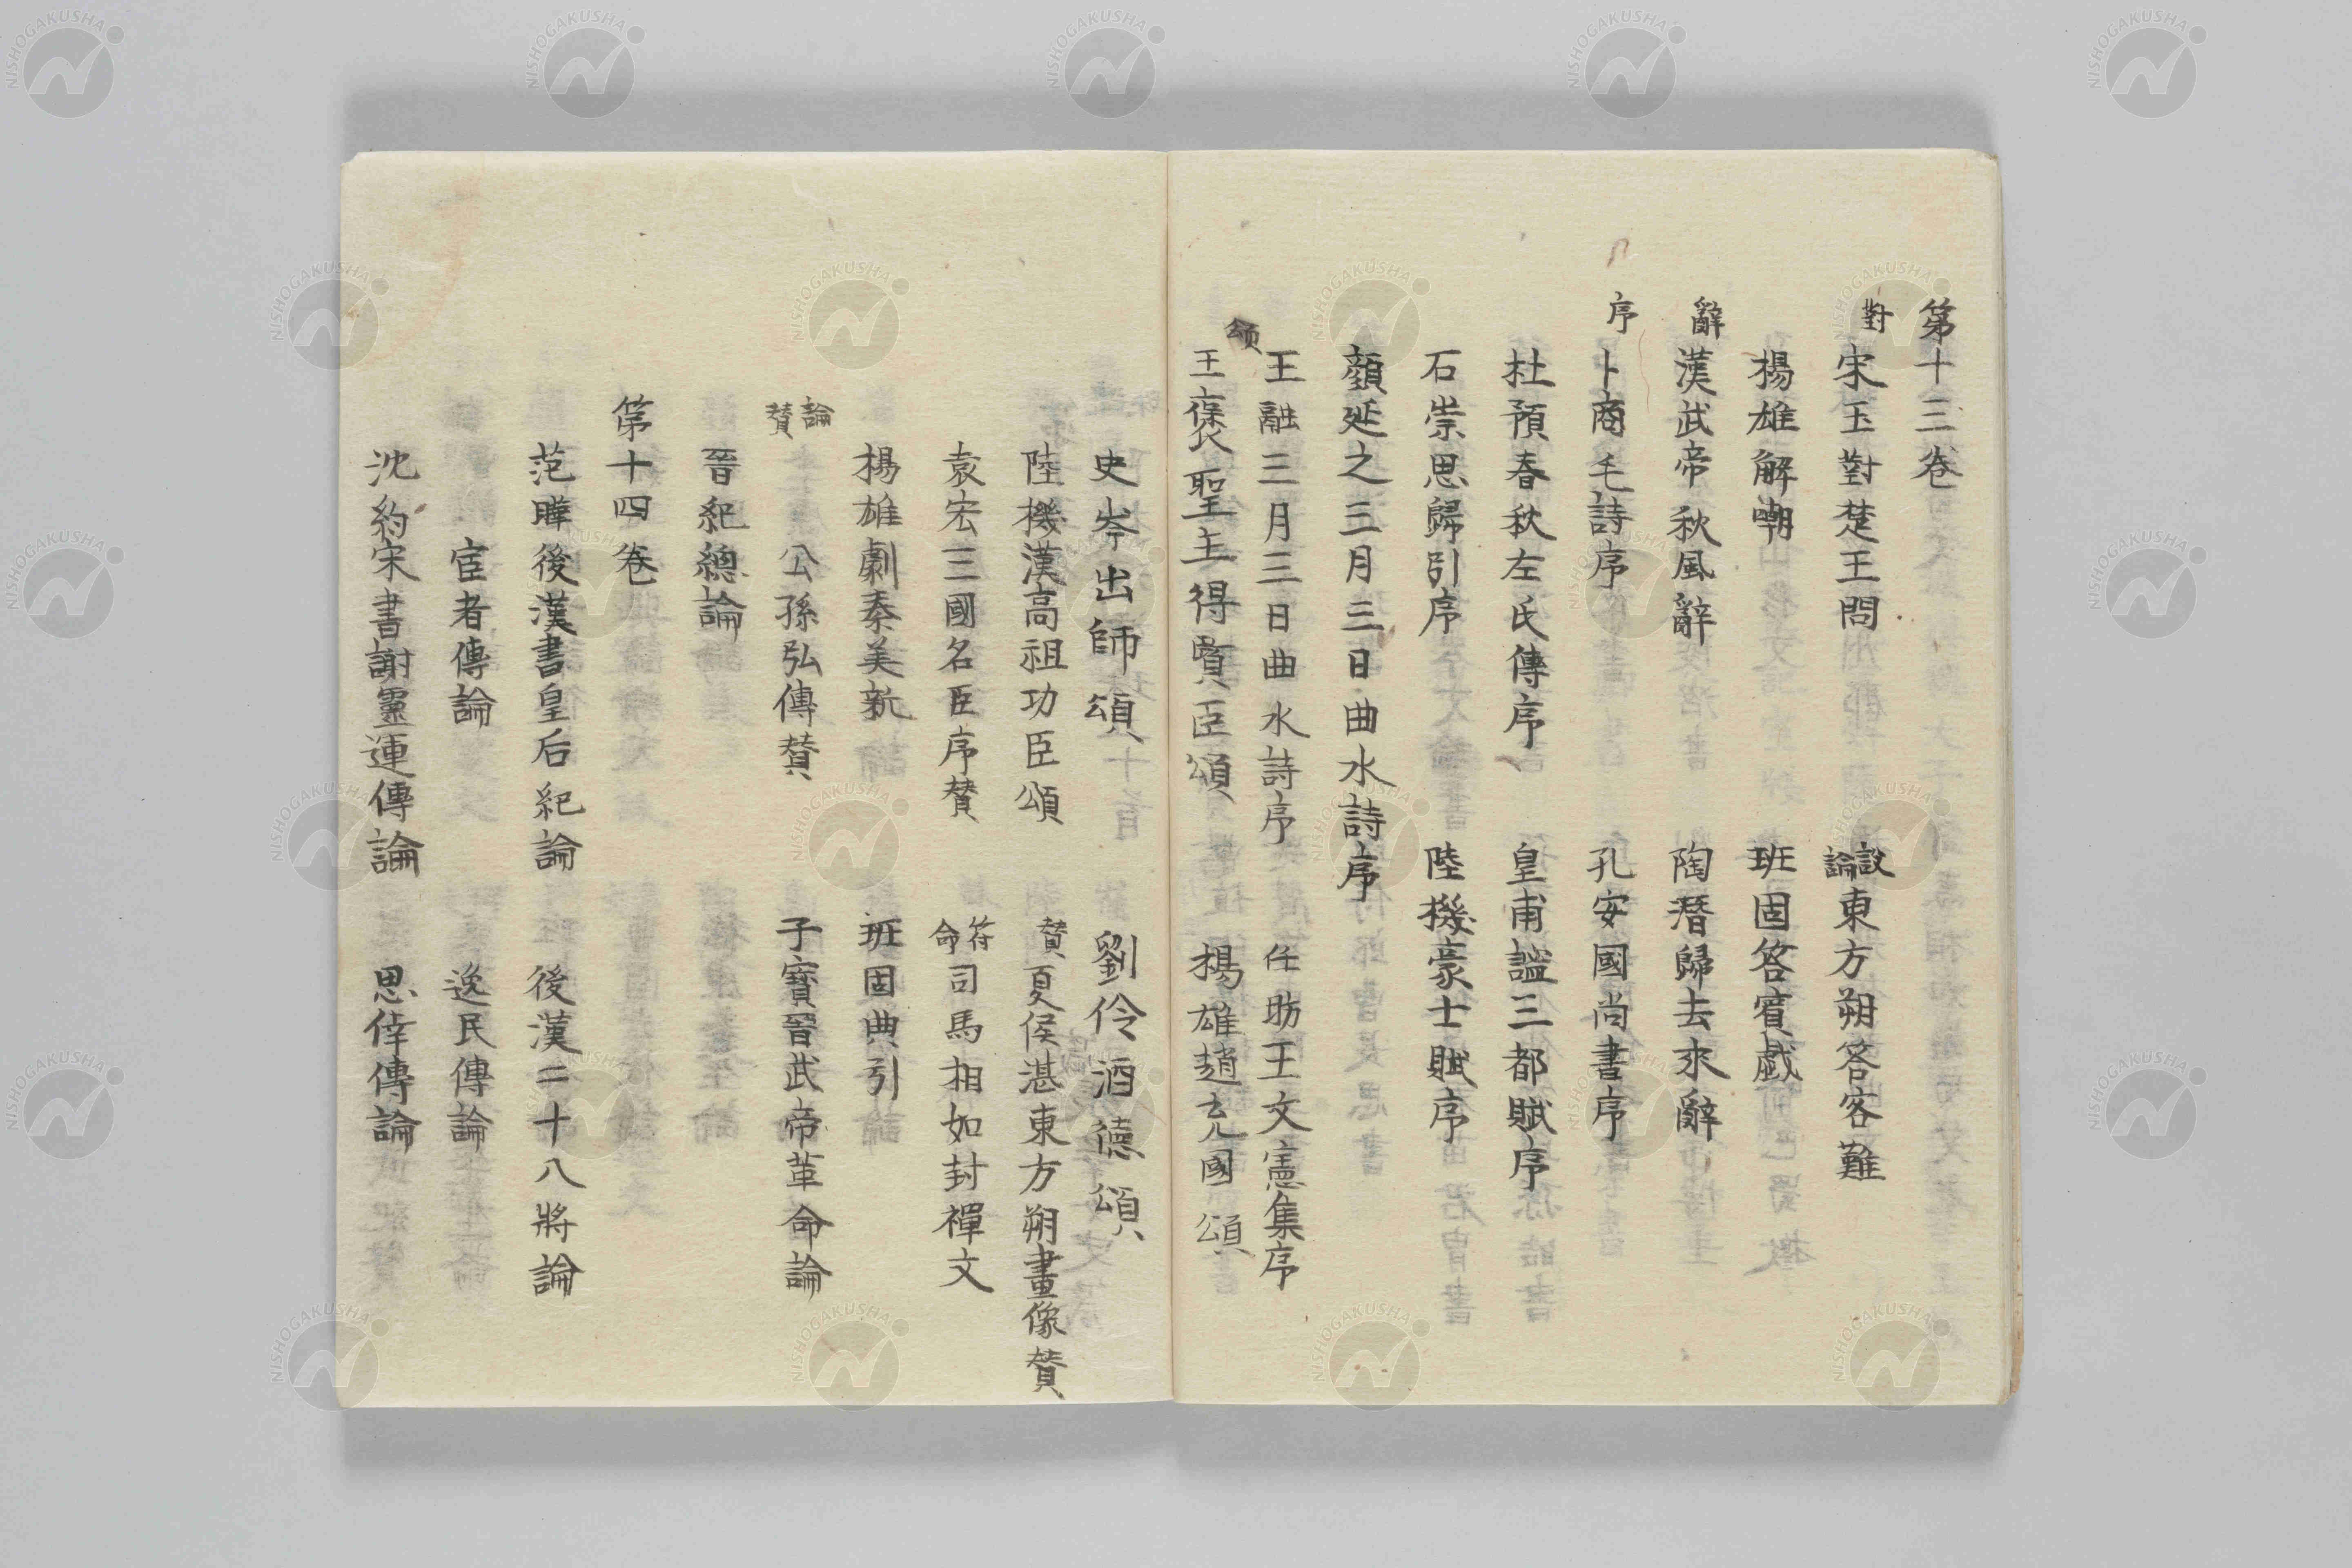 第十三卷
對
宋玉對楚王問
設論
東方朔答客難
楊雄解嘲
班固答賓戲
辭
漢武帝秋風辭
陶潛歸去來辭
序
卜商毛詩序
孔安國尚書序
杜預春秋左氏傳序
皇甫謐三都賦序
石崇思歸引序
陸機豪士賦序
顏延之三月三日曲水詩序
王融三月三日曲水詩序
任昉王文憲集序
頌
王襃聖主得賢臣頌
楊雄趙充國頌
史岑出師頌
劉伶酒德頌
陸機漢高祖功臣頌
贊
夏侯湛東方朔畫像贊
袁宏三國名臣序贊
符命
司馬相如封禪文
楊雄劇秦美新
班固典引
論贊
公孫弘傳贊
子寶晉武帝革命論
晉紀總論
第十四卷
范曄後漢書皇后紀論
後漢二十八將論
宦者傳論
逸民傳論
沈約宋書謝靈運傳論
思倖傳論
NISHOGAKUSHA